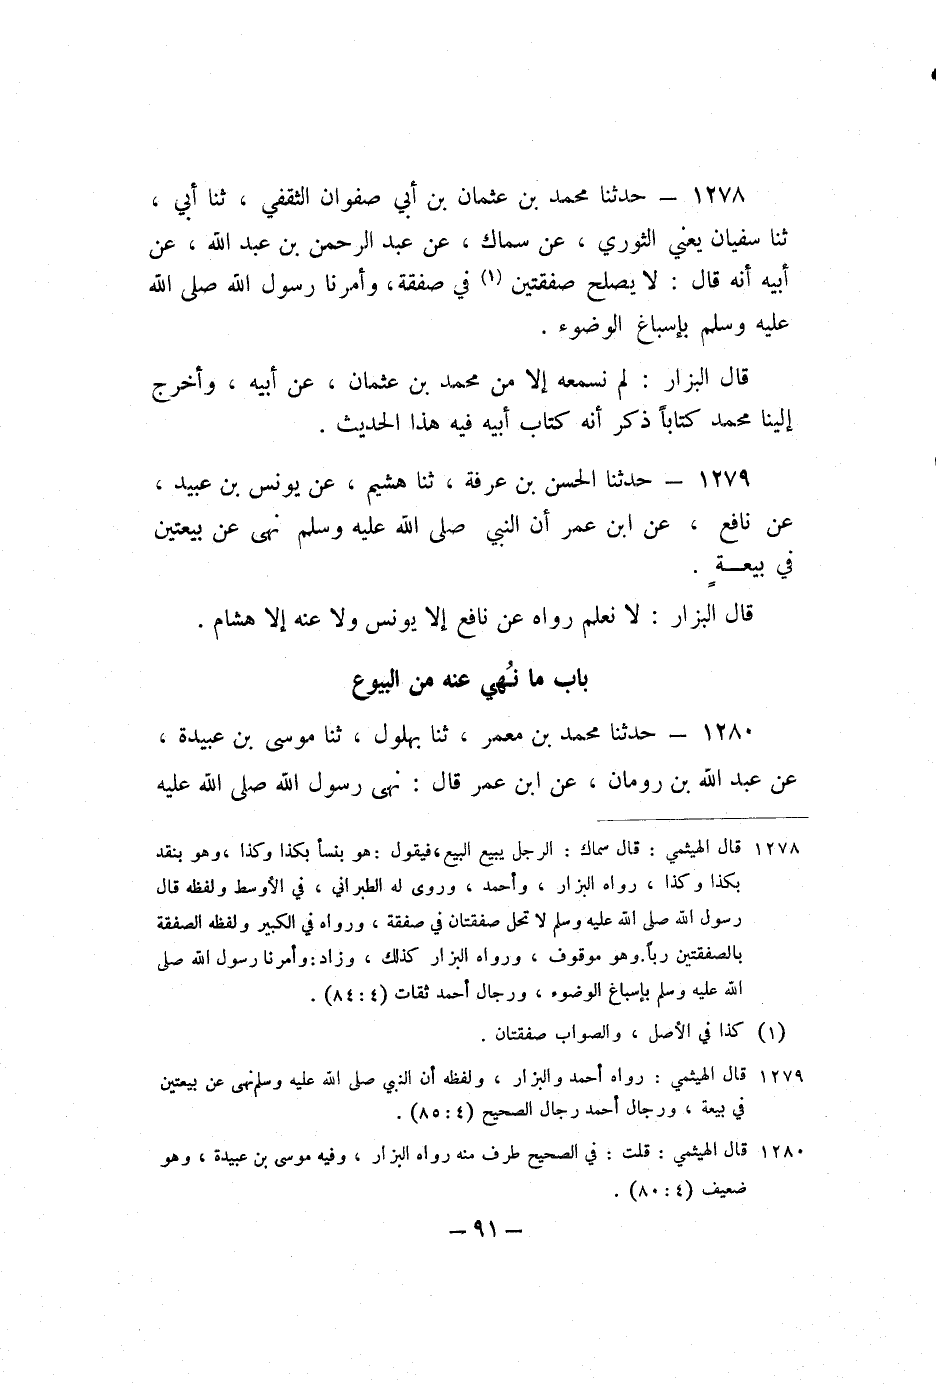 ١٢٧٨ – حدثنا محمد بن عثمان بن أبي صفوان الثقفي ، ثنا أبي ،
ثنا سفيان يعني الثوري ، عن سماك ، عن عبد الرحمن بن عبد الله ، عن
أبيه أنه قال : لا يصلح صفقتين (١) في صفقة ، وأمرنا رسول الله صلى الله
عليه وسلم بإسباغ الوضوء .
قال البزار : لم نسمعه إلا من محمد بن عثمان ، عن أبيه ، وأخرج
إلينا محمد كتاباً ذكر أنه كتاب أبيه فيه هذا الحديث .
١٢٧٩ – حدثنا الحسن بن عرفة ، ثنا هشيم ، عن يونس بن عبيد ،
عن نافع ، عن ابن عمر أن النبي صلى الله عليه وسلم نهى عن بيعتين
في بيعــةٍ .
قال البزار : لا نعلم رواه عن نافع إلا يونس ولا عنه إلا هشام .
باب ما نُهي عنه من البيوع
١٢٨٠ – حدثنا محمد بن معمر ، ثنا بهلول ، ثنا موسى بن عبيدة ،
عن عبد الله بن رومان ، عن ابن عمر قال : نهى رسول الله صلى الله عليه
١٢٧٨ قال الهيثمي : قال سماك : الرجل يبيع البيع ،فيقول :هو بنسأ بكذا وكذا ،وهو بنقد
بكذا وكذا ، رواه البزار ، وأحمد ، وروى له الطبراني ، في الأوسط ولفظه قال
رسول الله صلى الله عليه وسلم لا تحل صفقتان في صفقة ، ورواه في الكبير ولفظه الصفقة
بالصفقتين رباً.وهو موقوف ، ورواه البزار كذلك ، وزاد:وأمرنا رسول الله صلى
الله عليه وسلم بإسباغ الوضوء ، ورجال أحمد ثقات (٤ : ٨٤) .
(١) كذا في الأصل ، والصواب صفقتان .
١٢٧٩ قال الهيثمي : رواه أحمد والبزار ، ولفظه أن النبي صلى الله عليه وسلم نهى عن بيعتين
في بيعة ، ورجال أحمد رجال الصحيح (٤ : ٨٥) .
١٢٨٠ قال الهيثمي : قلت : في الصحيح طرف منه رواه البزار ، وفيه موسى بن عبيدة ، وهو
ضعيف (٤ : ٨٠) .
– ٩١ –